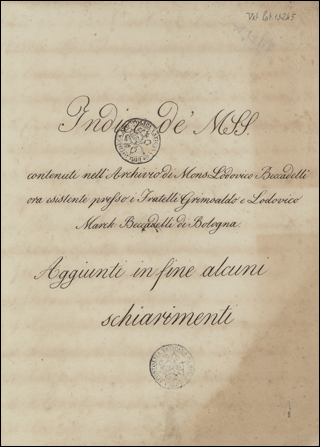 Vat. Lat. 13245
Indice de' MSS.
contenuti nell'Archivio di Mons. Lodovico Beccadelli
ora esistente presso i Fratelli Grimoaldo e Lodovico
March. Beccadelli di Bologna.
Aggiunti in fine alcuni
schiarimenti